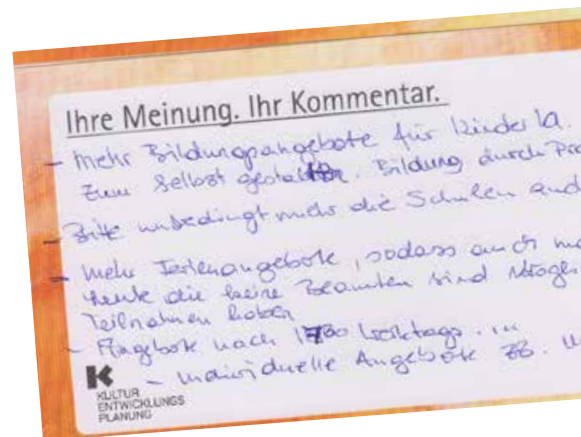 Ihre Meinung. Ihr Kommentar.
- mehr Bildungsangebote für Kinder
zum selbst gestalten. Bildung durch
- Bitte unbedingt mehr die Schulen
- mehr Ferienangebote, sodass auch
Leute die keine Beamten sind
Teilnahmen haben
- Angebote nach 1700 Werktags.
- individuelle Angebote zB.
K
KULTUR
ENTWICKLUNGS
PLANUNG